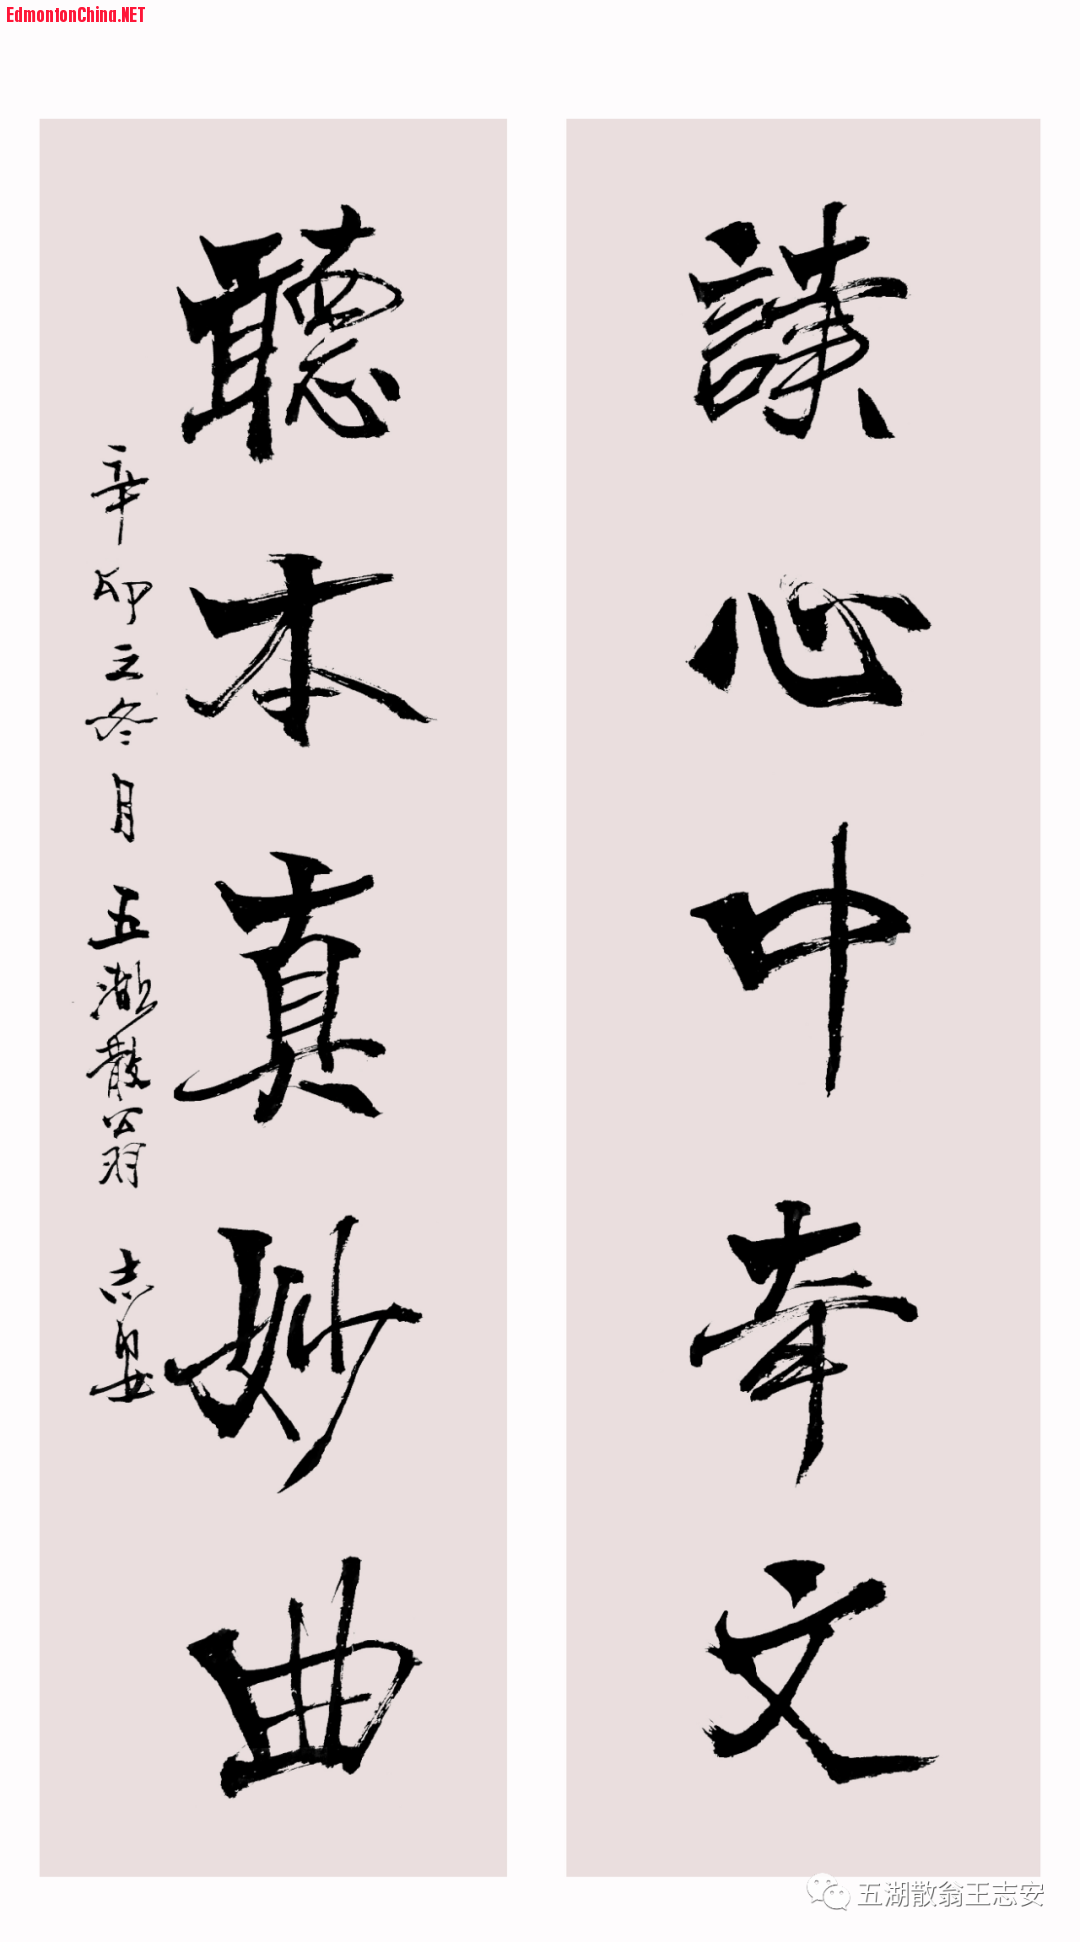 EdmontonChina.NET
讀心中文
聽本真妙曲
辛卯立冬月 五湖散翁 志安
五湖散翁王志安